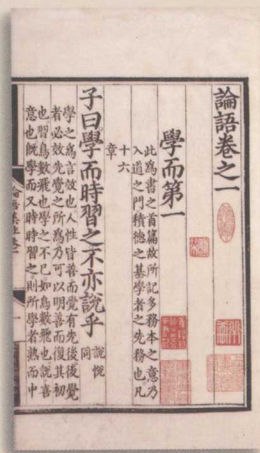 論語卷之一
學而第一
此爲書之首篇故所記多務本之意乃
入道之門積德之基學者之先務也凡
十六
章
子曰學而時習之不亦說乎
說悅
同
學之爲言效也人性皆善而覺有先後後覺
者必效先覺之所爲乃可以明善而復其初
也習鳥數飛也學之不已如鳥數飛也說喜
意也旣學而又時時習之則所學者熟而中